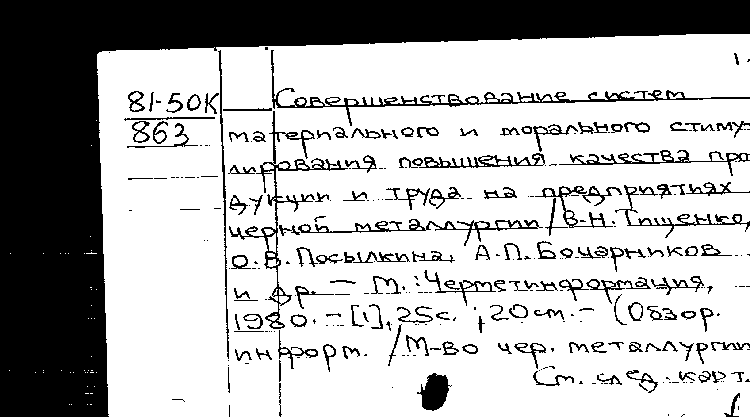 81-50К
863
Совершенствование систем
материального и морального стиму-
лирования повышения качества про
дукции и труда на предприятиях
черной металлургии / В.Н. Тищенко,
О.В. Посылкина, А.П. Бочарников
и др. — М. : Черметинформация,
1980. — [1], 25с. ; 20см. — (Обзор.
информ. / М-во чер. металлургии
См. след. карт.